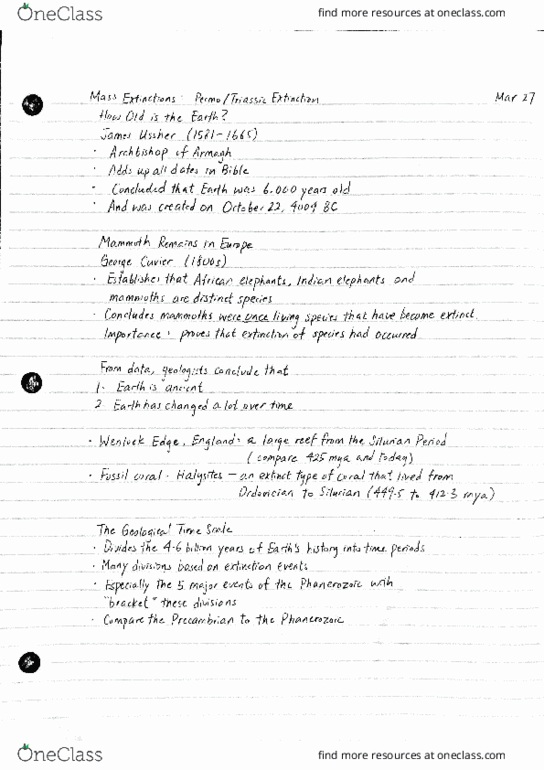 OneClass
find more resources at oneclass.com
Mass Extinctions: Permo/Triassic Extinction
Mar 27
How Old is the Earth?
James Ussher (1581-1665)
· Archbishop of Armagh
· Adds up all dates in Bible
· Concluded that Earth was 6,000 years old
· And was created on October 22, 4004 BC
Mammoth Remains in Europe
George Cuvier (1800s)
· Establishes that African elephants, Indian elephants and
mammoths are distinct species
· Concludes mammoths were once living species that have become extinct.
Importance: proves that extinction of species had occurred
From data, geologists conclude that
1. Earth is ancient
2. Earth has changed a lot over time
· Wenlock Edge, England: a large reef from the Silurian Period
(compare 425 mya and today)
· Fossil coral - Halysites — an extinct type of coral that lived from
Ordovician to Silurian (449.5 to 412.3 mya)
The Geological Time Scale
· Divides the 4.6 billion years of Earth's history into time periods
· Many divisions based on extinction events
· Especially the 5 major events of the Phanerozoic with
"bracket" these divisions
· Compare the Precambrian to the Phanerozoic
OneClass
find more resources at oneclass.com